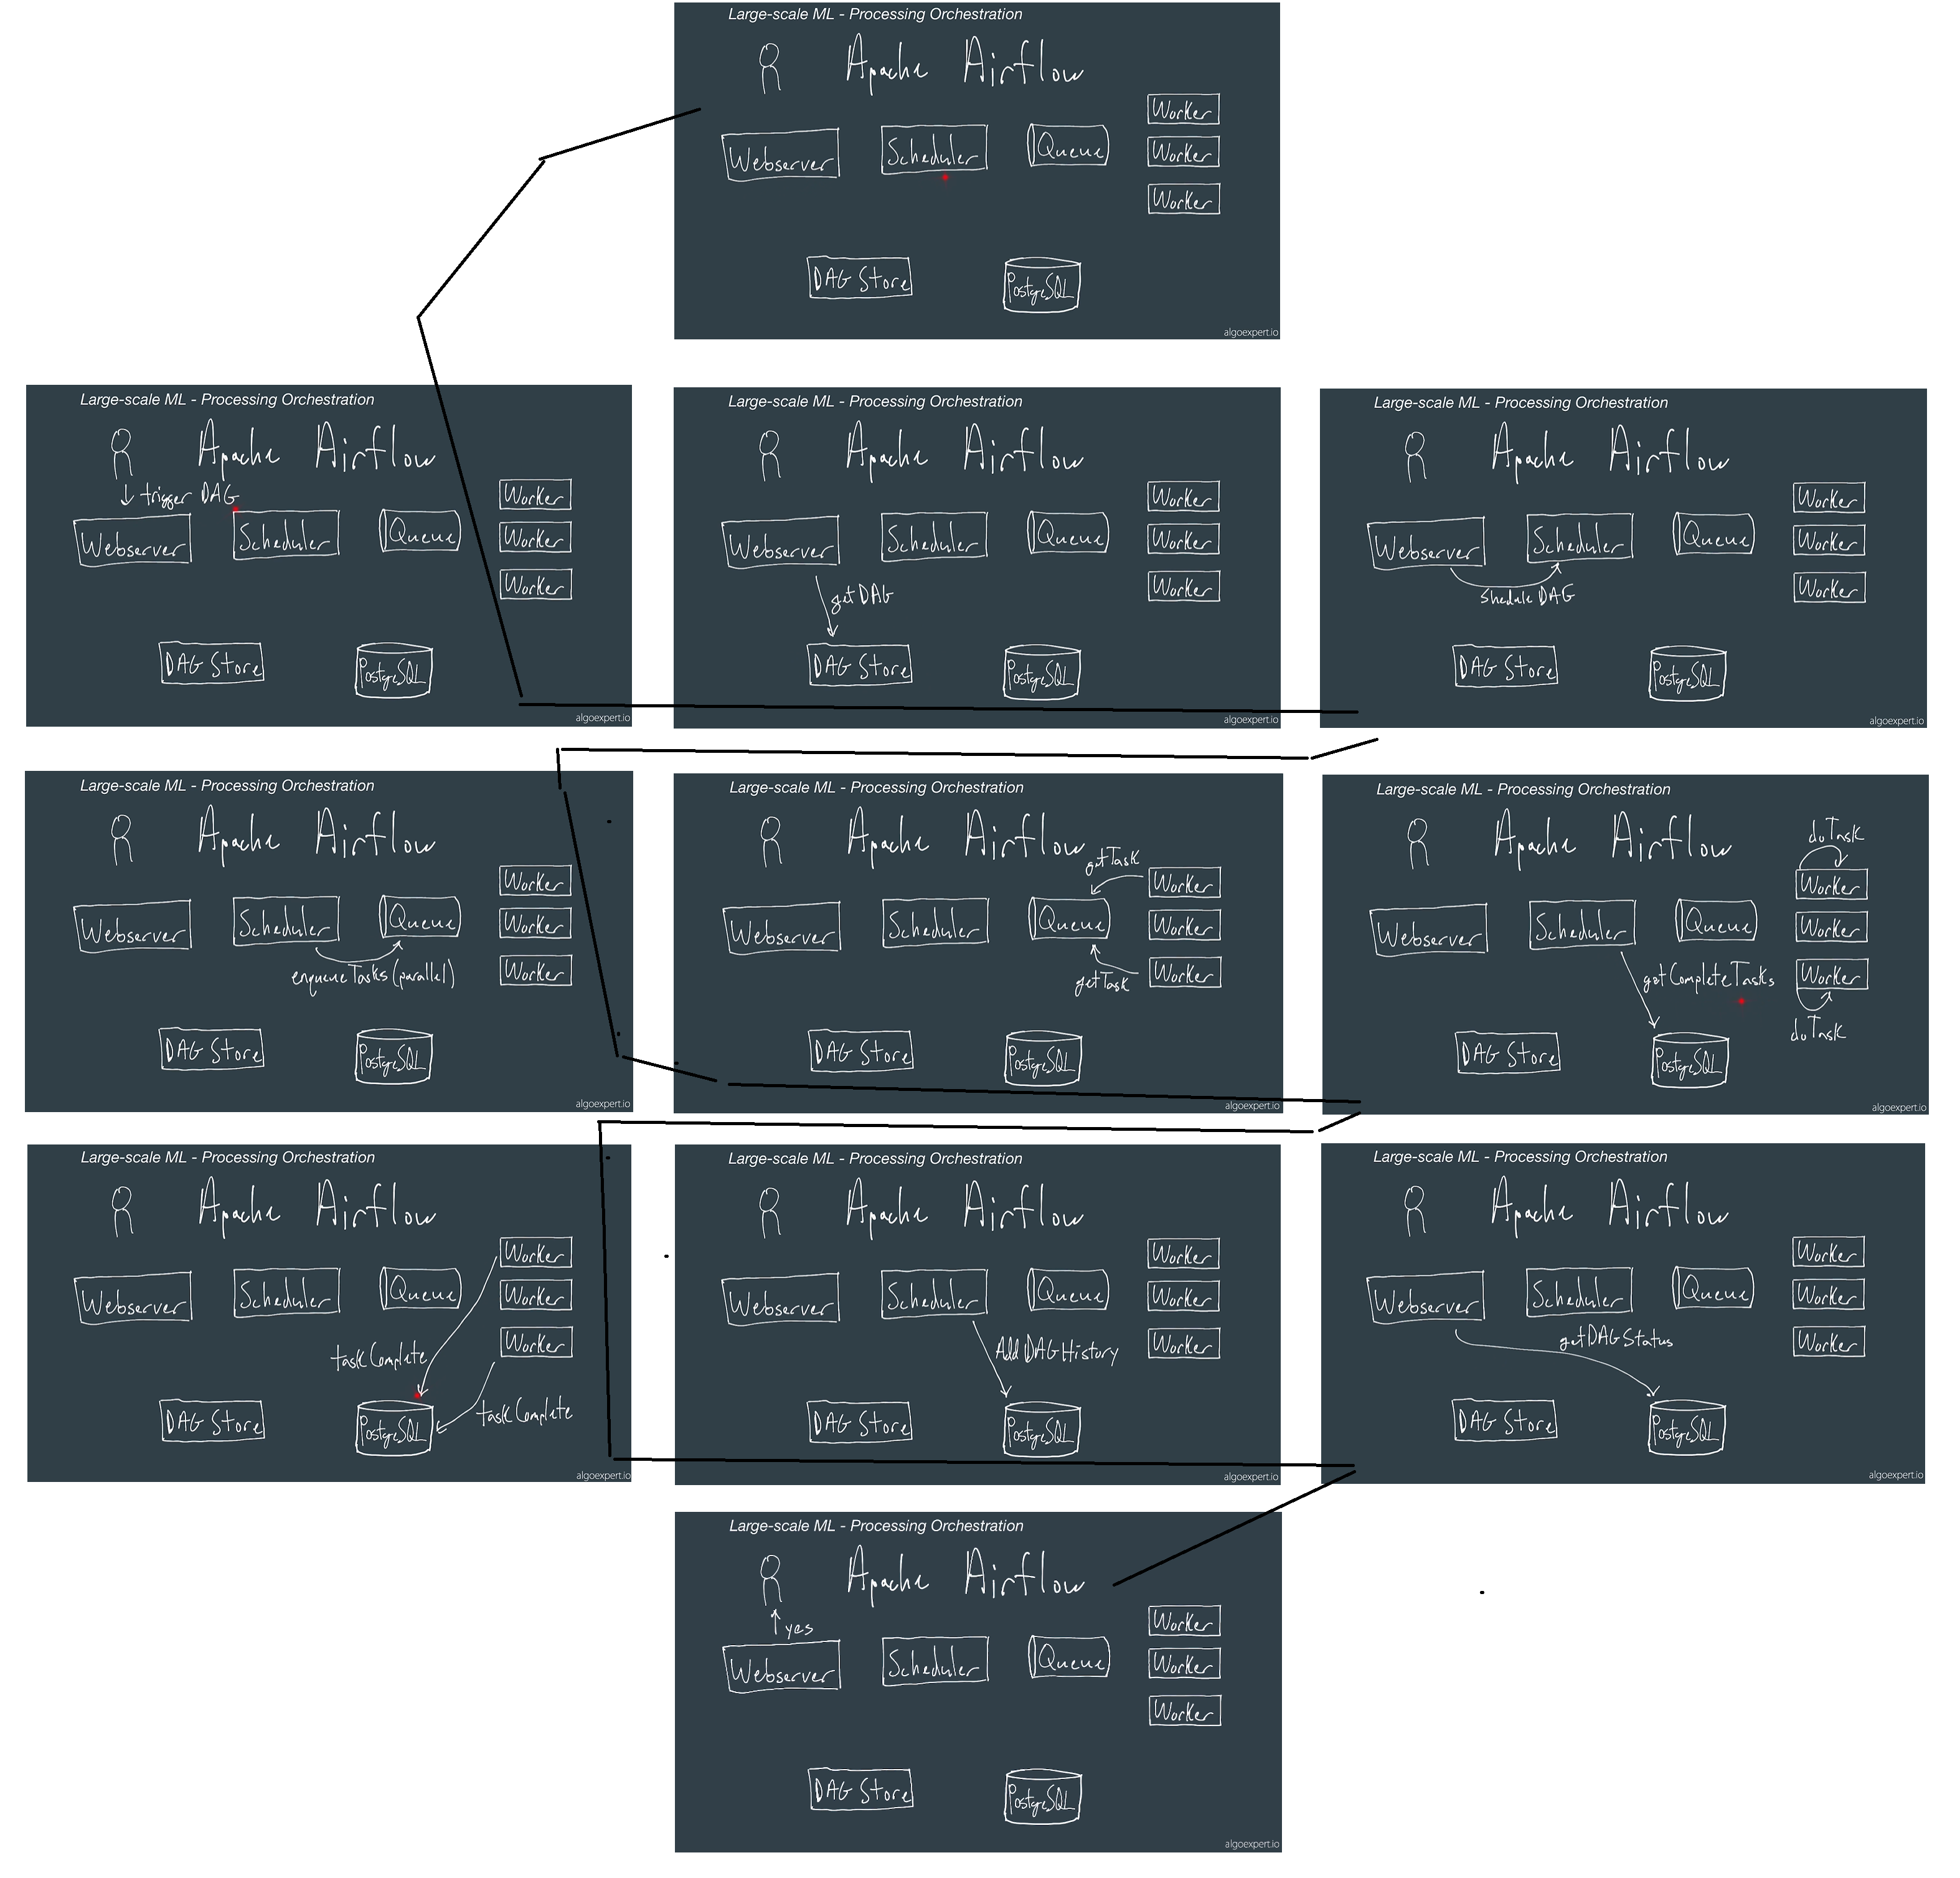 Large-scale ML - Processing Orchestration
Apache Airflow
Worker
Webserver Scheduler Queue Worker
Worker
DAG Store PostgreSQL
algoexpert.io
Large-scale ML - Processing Orchestration
Apache Airflow
trigger DAG Worker
Webserver Scheduler Queue Worker
Worker
DAG Store PostgreSQL
algoexpert.io
Large-scale ML - Processing Orchestration
Apache Airflow
Worker
Webserver Scheduler Queue Worker
getDAG Worker
DAG Store PostgreSQL
algoexpert.io
Large-scale ML - Processing Orchestration
Apache Airflow
Worker
Webserver Scheduler Queue Worker
shedule DAG Worker
DAG Store PostgreSQL
algoexpert.io
Large-scale ML - Processing Orchestration
Apache Airflow
Worker
Webserver Scheduler Queue Worker
enqueueTasks (parallel) Worker
DAG Store PostgreSQL
algoexpert.io
Large-scale ML - Processing Orchestration
Apache Airflow
getTask Worker
Webserver Scheduler Queue Worker
getTask Worker
DAG Store PostgreSQL
algoexpert.io
Large-scale ML - Processing Orchestration
doTask
Apache Airflow
Worker
Webserver Scheduler Queue Worker
getCompleteTasks Worker
doTask
DAG Store PostgreSQL
algoexpert.io
Large-scale ML - Processing Orchestration
Apache Airflow
Worker
Webserver Scheduler Queue Worker
Worker
taskComplete
taskComplete
DAG Store PostgreSQL
algoexpert.io
Large-scale ML - Processing Orchestration
Apache Airflow
Worker
Webserver Scheduler Queue Worker
Add DAGHistory Worker
DAG Store PostgreSQL
algoexpert.io
Large-scale ML - Processing Orchestration
Apache Airflow
Worker
Webserver Scheduler Queue Worker
getDAGStatus Worker
DAG Store PostgreSQL
algoexpert.io
Large-scale ML - Processing Orchestration
Apache Airflow
yes Worker
Webserver Scheduler Queue Worker
Worker
DAG Store PostgreSQL
algoexpert.io